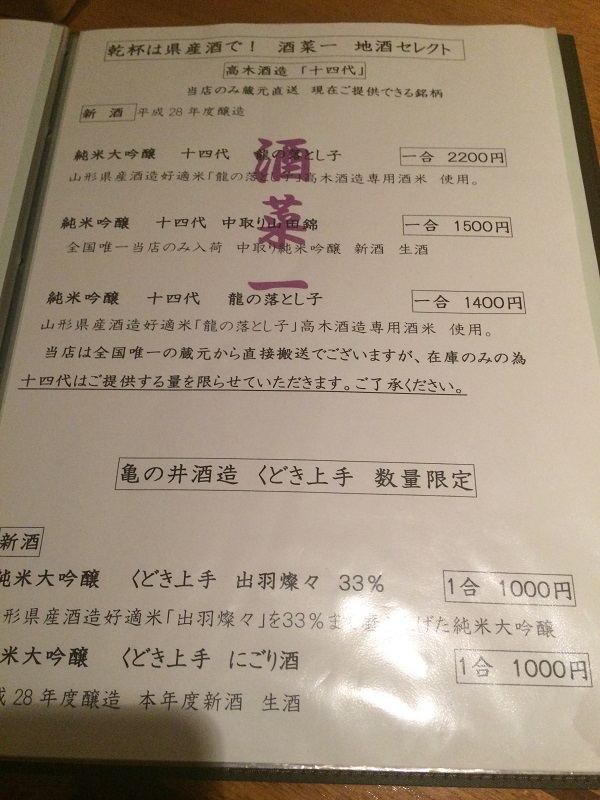 乾杯は県産酒で! 酒菜一 地酒セレクト
高木酒造 「十四代」
当店のみ蔵元直送 現在ご提供できる銘柄
新 酒 平成28年度醸造
純米大吟醸 十四代 龍の落とし子 一合 2200円
山形県産酒造好適米「龍の落とし子」高木酒造専用酒米 使用。
純米吟醸 十四代 中取り山田錦 一合 1500円
全国唯一当店のみ入荷 中取り純米吟醸 新酒 生酒
純米吟醸 十四代 龍の落とし子 一合 1400円
山形県産酒造好適米「龍の落とし子」高木酒造専用酒米 使用。
当店は全国唯一の蔵元から直接搬送でございますが、在庫のみの為
十四代はご提供する量を限らせていただきます。ご了承ください。
酒菜一
亀の井酒造 くどき上手 数量限定
新酒
純米大吟醸 くどき上手 出羽燦々 33% 1合 1000円
形県産酒造好適米「出羽燦々」を33%ま げた純米大吟醸
米大吟醸 くどき上手 にごり酒 1合 1000円
28年度醸造 本年度新酒 生酒